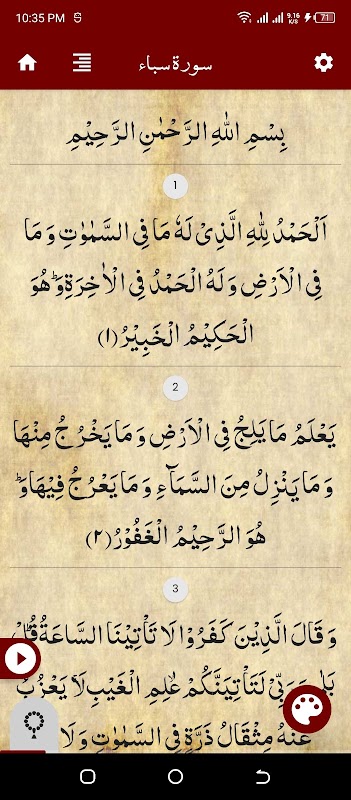 10:35 PM
9.16 K/S 71
سورة سباء
بِسْمِ اللهِ الرَّحْمٰنِ الرَّحِيْمِ
1
اَلْحَمْدُ لِلّٰهِ الَّذِىْ لَهٗ مَا فِى السَّمٰوٰتِ وَ مَا
فِى الْاَرْضِ وَ لَهُ الْحَمْدُ فِى الْاٰخِرَةِؕ وَ هُوَ
الْحَكِيْمُ الْخَبِيْرُ(١)
2
يَعْلَمُ مَا يَلِجُ فِى الْاَرْضِ وَ مَا يَخْرُ جُ مِنْهَا
وَ مَا يَنْزِلُ مِنَ السَّمَآءِ وَ مَا يَعْرُ جُ فِيْهَاؕ وَ
هُوَ الرَّحِيْمُ الْغَفُوْرُ(٢)
3
وَ قَالَ الَّذِيْنَ كَفَرُوْا لَا تَاْتِيْنَا السَّاعَةُؕ قُلْ
وَ رَبِّىْ لَتَاْتِيَنَّكُمْۙ عٰلِمِ الْغَيْبِۚ لَا يَعْزُبُ
عَنْهُ مِثْقَالُ ذَرَّةٍ فِى السَّمٰوٰتِ وَ لَا